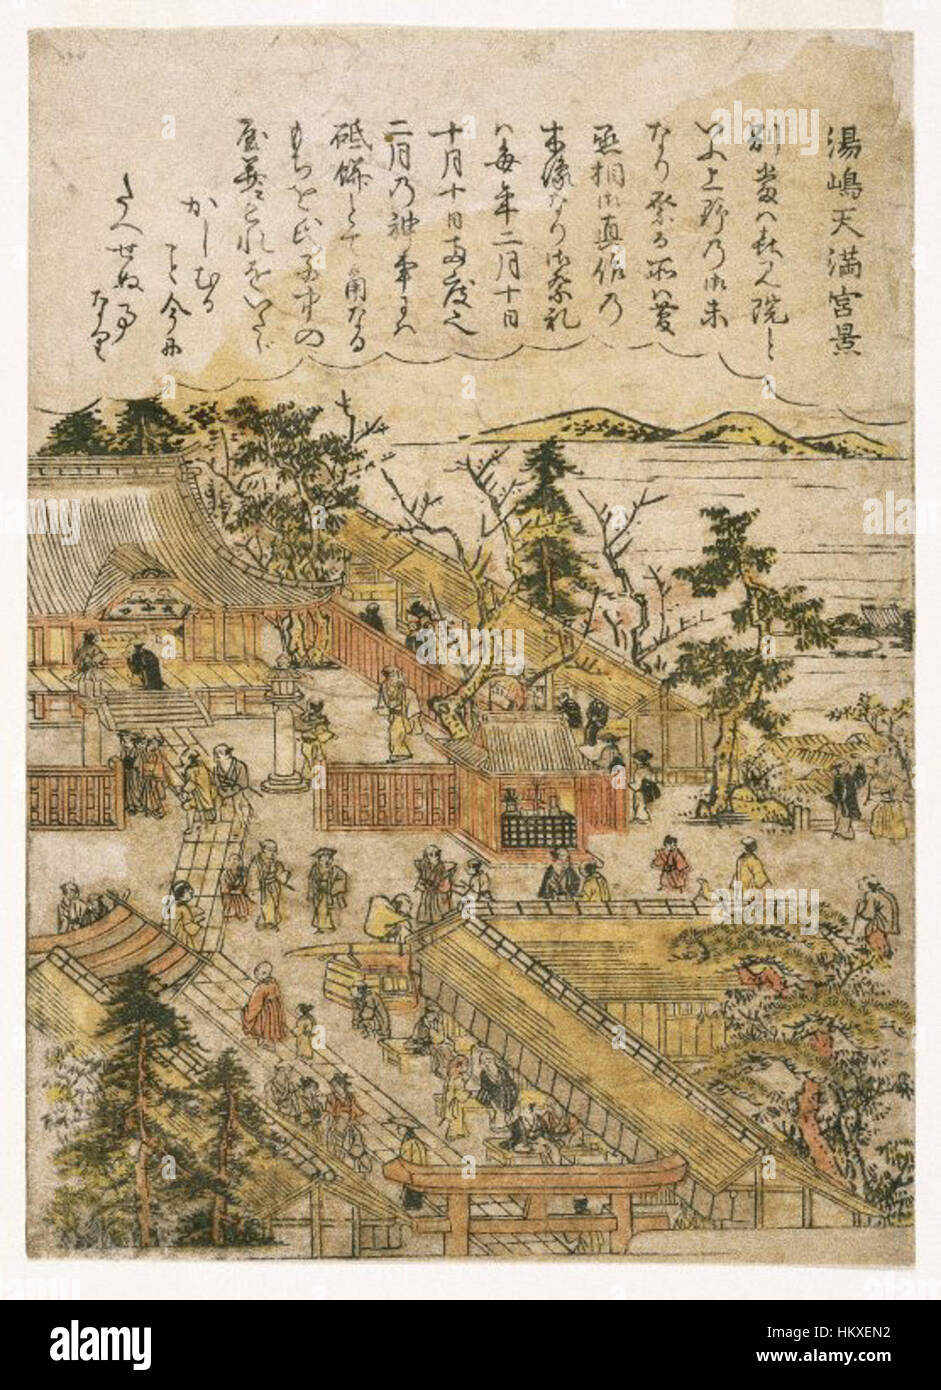 湯嶋天満宮景
別当ハ喜見院と
いふ上野乃御末
なり祭る所ハ菅
丞相御真作乃
木像なり御祭礼
ハ毎年二月十日
十月十日両度也
二月乃神事にハ
砥餅とて角なる
もちを氏子中の
かしむる
こと今に
たへせぬ事
なり
alamy
Image ID: HKXEN2
www.alamy.com